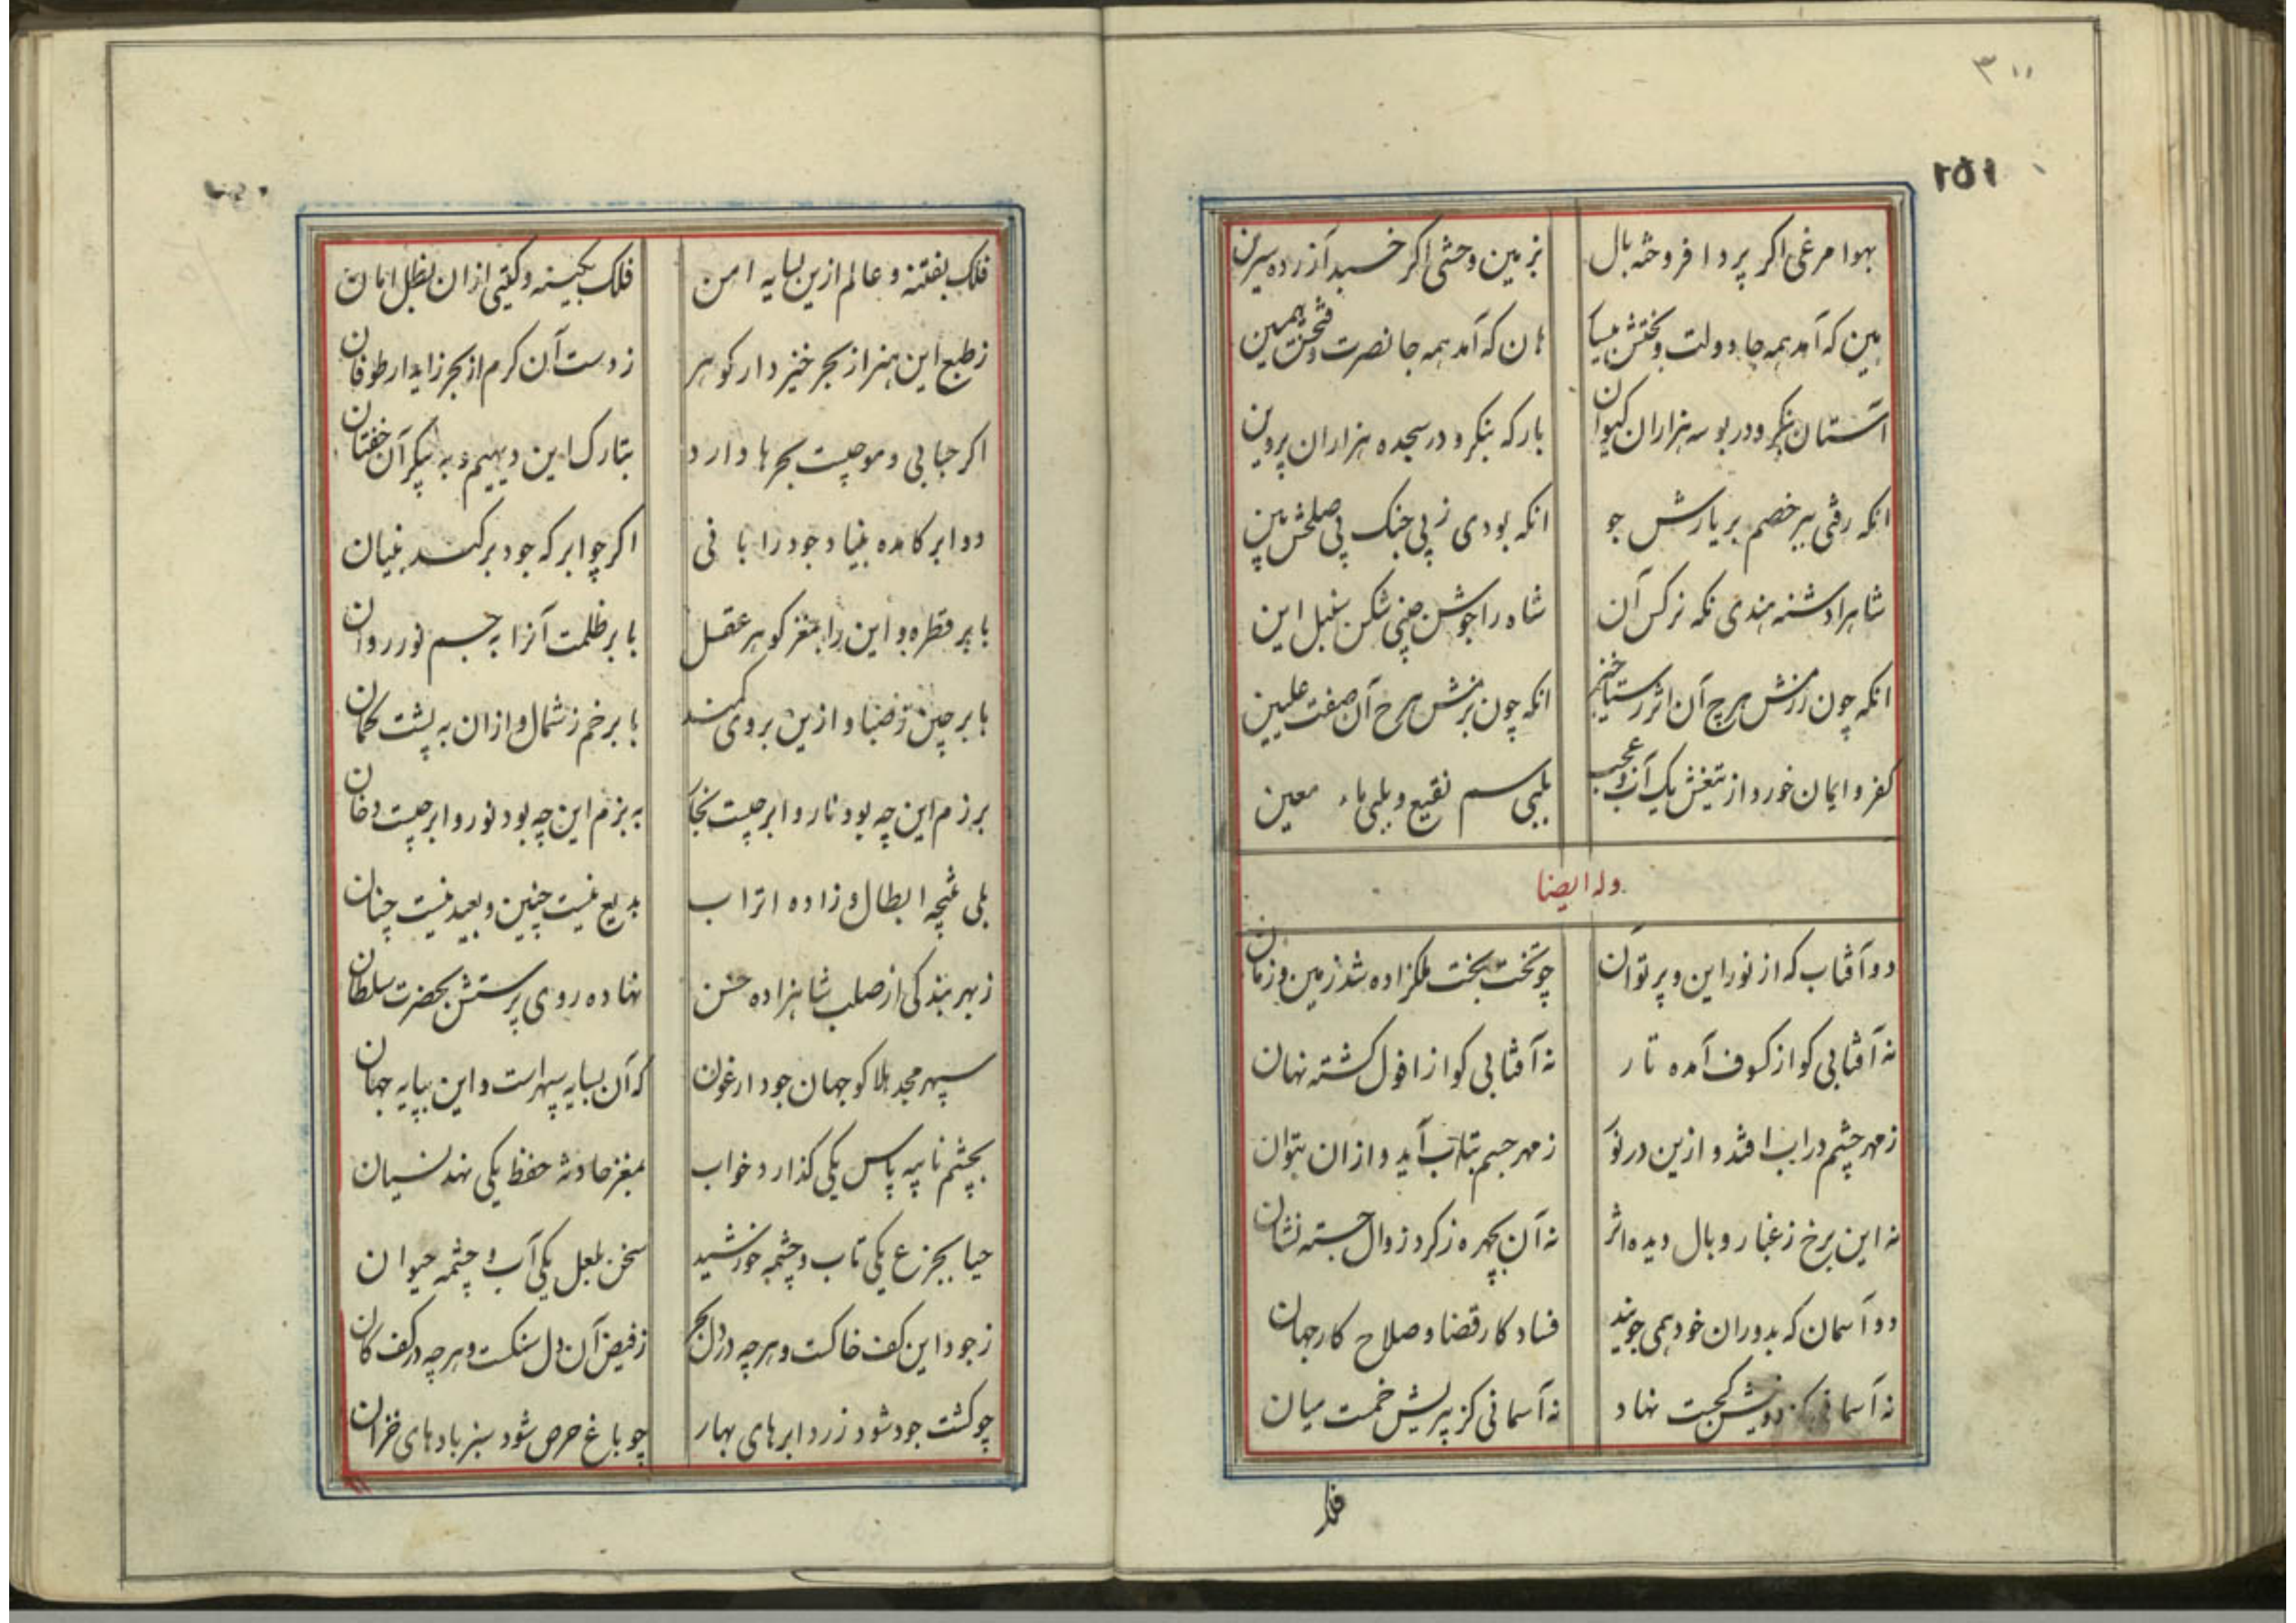 ۳۰۰
۲۵۱
بهوا مرغی اکر پرد افروخته بال بزمین وحشی اکر خسبد آزرده سرین
هین که آمد همه جا دولت و بختش بیسار هان که آمد همه جا نصرت و فتحش بیمین
آستان بنکر و در بوسه هزاران کیوان بارکه بنکر و در سجده هزاران پروین
انکه رفتی ببر خصم بر یارش جو انکه بودی ز پی جنک پی صلحش بین
شاهرا دشنه هندی نکه نرکس آن شاه را جوشن چینی شکن سنبل این
انکه چون رزمش هرچ آن اثر رستاخیز انکه چون بزمش هرچ آن صفت علیین
کفر و ایمان خورد از تیغش یک آب و عجب بیکی سم نقیع و بیکی ماء معین
وله ایضا
دو آفتاب که از نور این و پرتو آن چو تخت بخت ملکزاده شد زمین و زمان
نه آفتابی کو از کسوف آمده تار نه آفتابی کو از افول کشته نهان
ز مهر چشم در اب افتد و ازین در نور ز مهر جسم بتاب آید و ازان بتوان
نه این برخ ز غبار وبال دیده اثر نه آن بچهره ز کرد زوال جسته نشان
دو آسمان که بدوران خود همی جویند فساد کار قضا و صلاح کار جهان
نه آسمانی کز کجیت نهاد نه آسمانی کز پریش خمست میان
فلک
فلک بفتنه و عالم ازین بسایه امن فلک بکینه و کیتی ازان بظل امان
ز طبع این هنر از بحر خیز دار کوهر ز دست آن کرم از بحر زاید ار طوفان
اکر حبابی و موجیست بحرها دارد بتارک این دیهیم و به پیکر آن خفتان
دو ابر کامده بنیاد جود را بانی اکر چو ابر که جود برکند بنیان
بابر قطره و این را بمغز کوهر عقل بابر ظلمت آنرا به جسم نور روان
بابر چین ز صبا و ازین بروی کمند بابر خم ز شمال و ازان به پشت کمان
برزم این چه بود نار و ابر چیست بخار به بزم این چه بود نور و ابر چیست دخان
بلی نتیجه ابطال و زاده اتراب بدیع نیست چنین و بعید نیست چنان
ز بهر بندکی از صلب شاهزاده حسن نهاده روی پرستش بحضرت سلطان
سپهر مجد هلاکو جهان جود ارغون که آن بسایه سپهر است و این بپایه جهان
بچشم نایبه پاس یکی کذارد خواب بمغز حادثه حفظ یکی نهد نسیان
حیا بجزع یکی تاب و چشمه خورشید سخن بلعل یکی آب و چشمه حیوان
ز جود این کف خاکست و هر چه در دل بحر ز فیض آن دل سنکست و هر چه در کف کان
چو کشت جود شود زرد ابرهای بهار چو باغ حرص شود سبز بادهای خزان